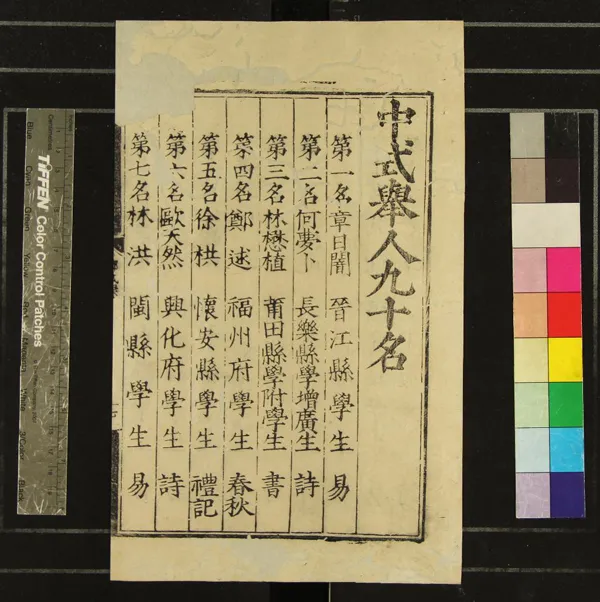 中式舉人九十名
第一名章日闇 晉江縣學生 易
第二名何夢卜 長樂縣學增廣生 詩
第三名林懋植 莆田縣學附學生 書
第四名鄭逑 福州府學生 春秋
第五名徐栱 懷安縣學生 禮記
第六名歐天然 興化府學生 詩
第七名林洪 閩縣學生 易
TIFFEN Color Control Patches
Blue
Cyan
Green
Yellow
Red
Magenta
White
Black